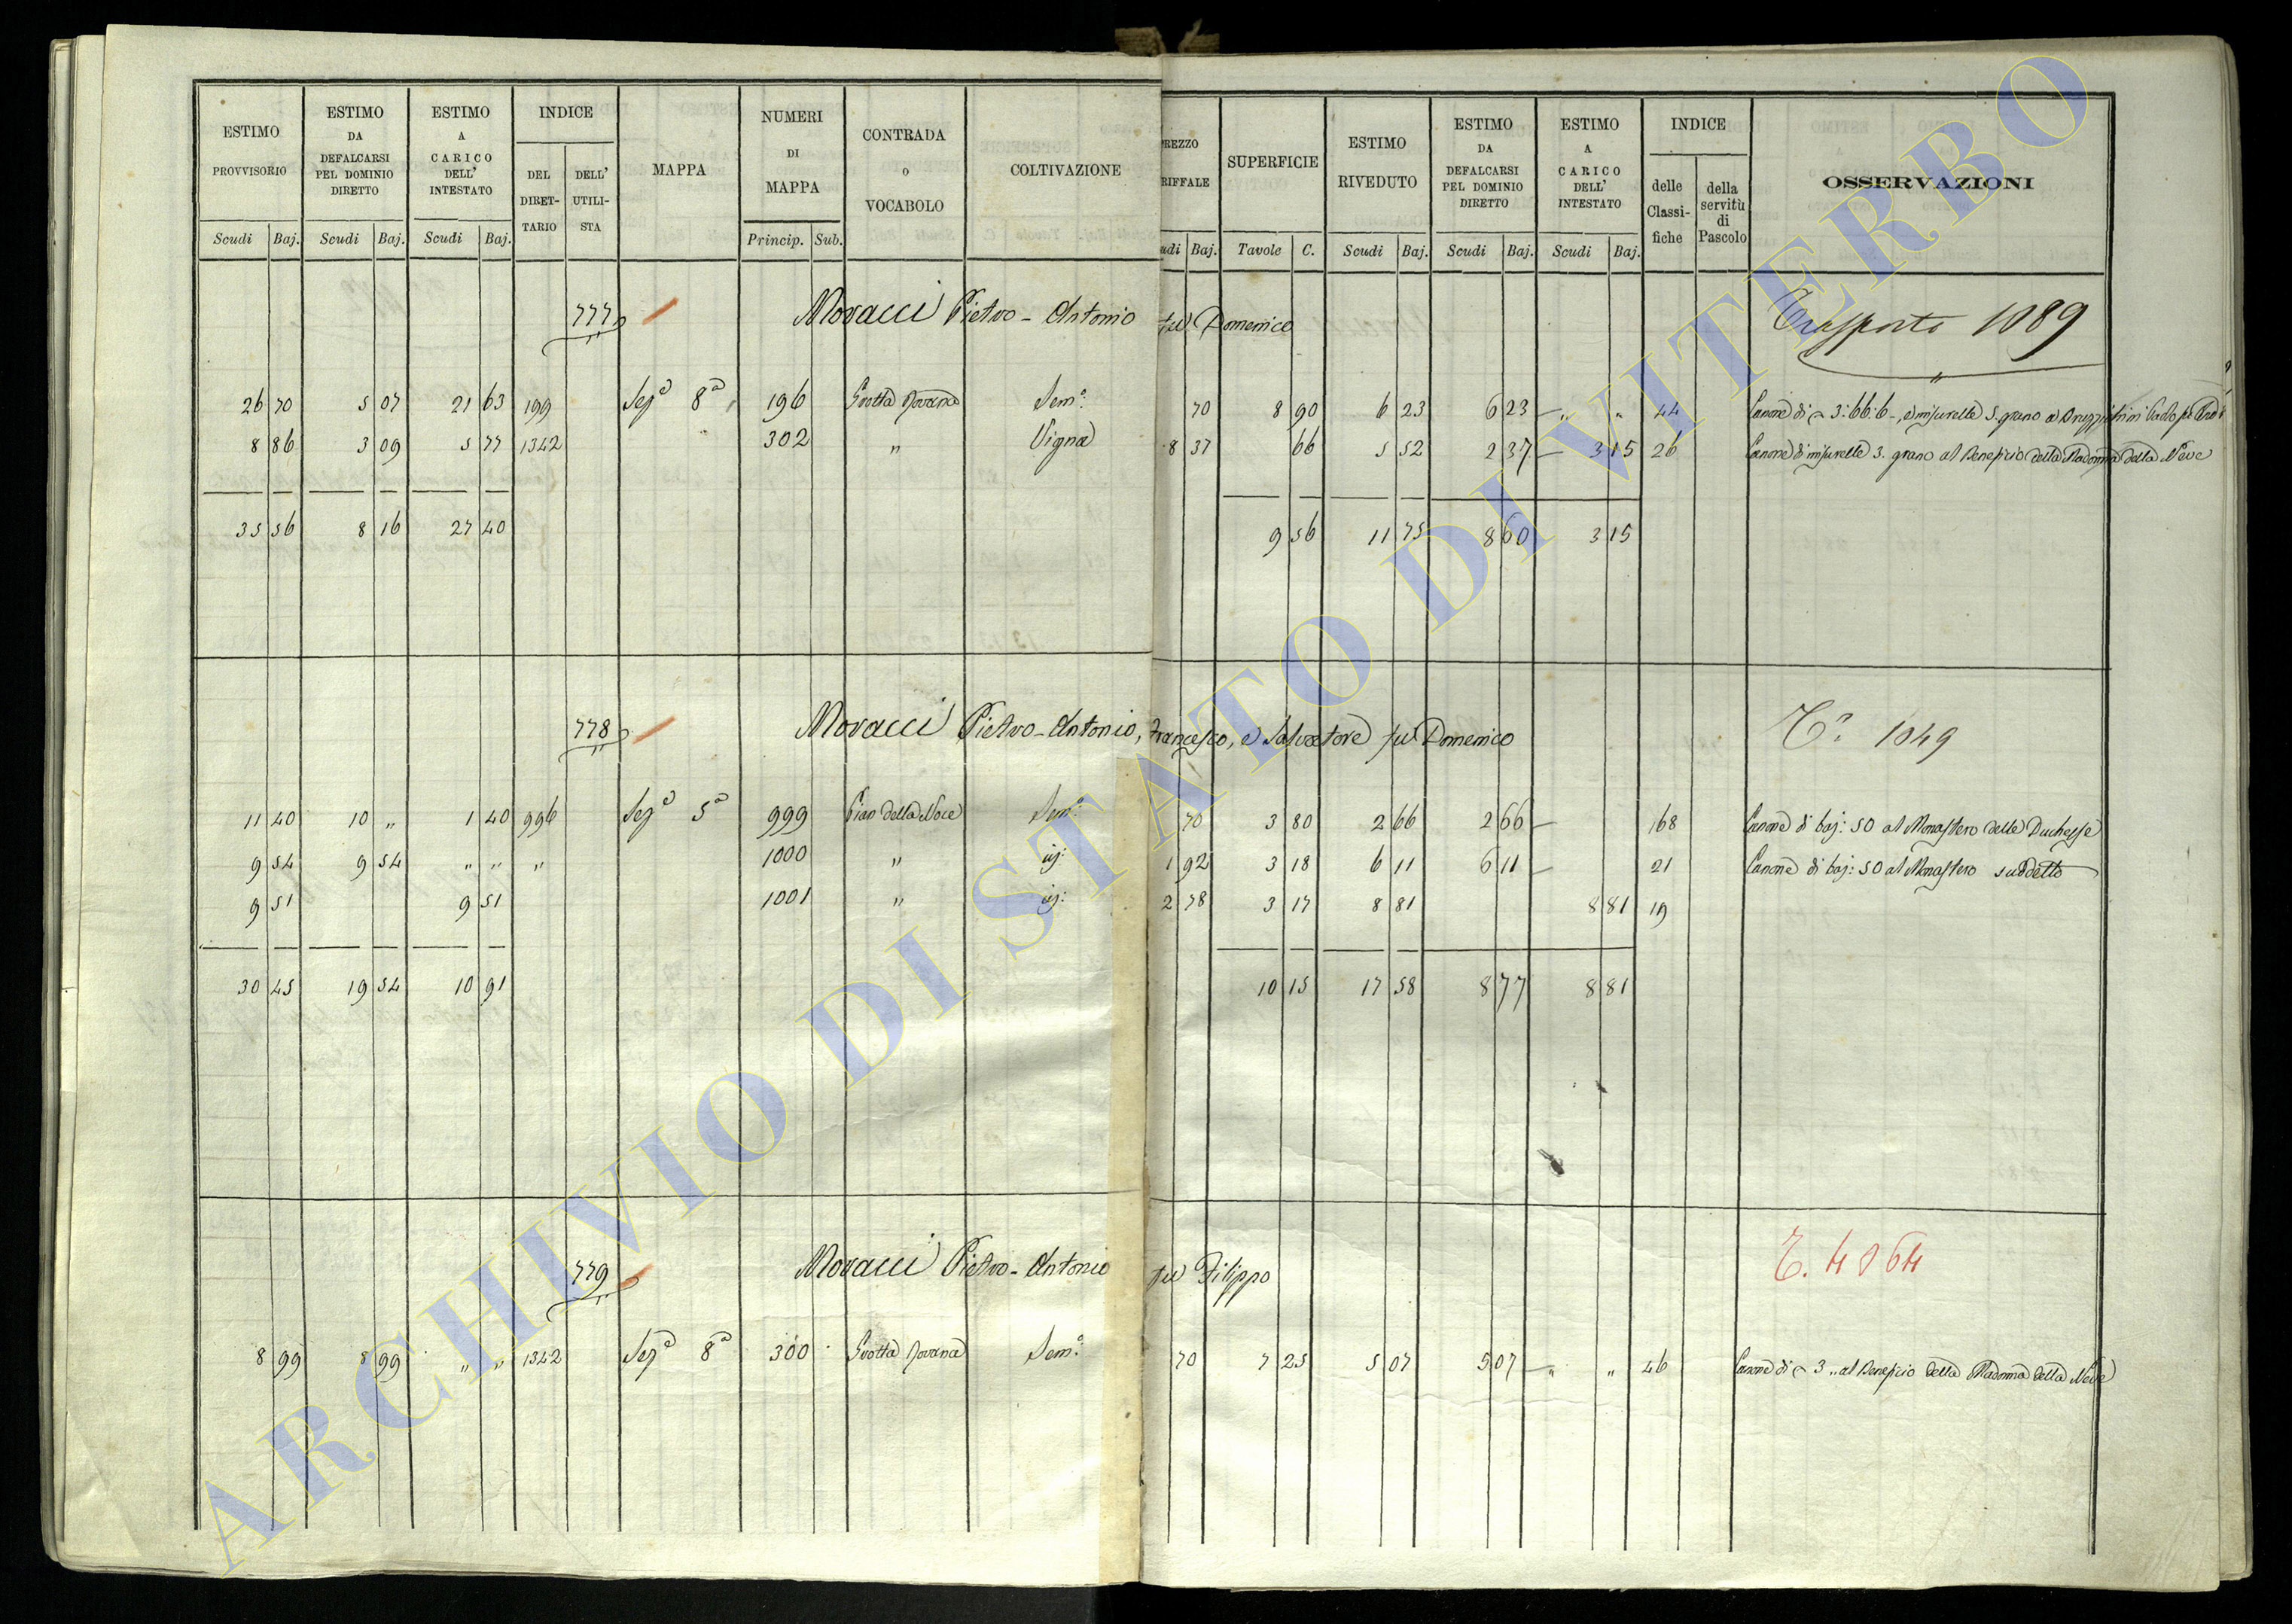 ESTIMO PROVVISORIO | ESTIMO DA DEFALCARSI PEL DOMINIO DIRETTO | ESTIMO A CARICO DELL' INTESTATO | INDICE DEL DIRET-TARIO | DELL' UTILI-STA | MAPPA | NUMERI DI MAPPA | CONTRADA O VOCABOLO | COLTIVAZIONE | REZZO RIFFALE | SUPERFICIE | ESTIMO RIVEDUTO | ESTIMO DA DEFALCARSI PEL DOMINIO DIRETTO | ESTIMO A CARICO DELL' INTESTATO | INDICE delle Classi-fiche | della servitù di Pascolo | OSSERVAZIONI
Scudi | Baj. | Scudi | Baj. | Scudi | Baj. | Princip. | Sub. | udi | Baj. | Tavole | C. | Scudi | Baj. | Scudi | Baj. | Scudi | Baj.
777 Moracci Pietro-Antonio fu Domenico Trasporto 1089
26 70 | 5 07 | 21 63 | 199 | Sezª 8ª | 196 | Grotta | Semº | 70 | 8 90 | 6 23 | 6 23 | " " | 44 | Canone di 3:66:6 e misurelle 5. grano a
8 86 | 3 09 | 5 77 | 1342 | 302 | " | Vigna | 8 37 | 66 | 5 52 | 2 37 | 3 15 | 26 | Canone di misurelle 3. grano al Beneficio della Madonna della Neve
35 56 | 8 16 | 27 40 | 9 56 | 11 75 | 8 60 | 3 15
778 Moracci Pietro-Antonio, Francesco, e Salvatore fu Domenico Tº 1049
11 40 | 10 " | 1 40 | 996 | Sezª 5ª | 999 | Pian della Noce | Semº | 70 | 3 80 | 2 66 | 2 66 | 168 | Canone di baj: 50 al Monastero delle Duchesse
9 54 | 9 54 | " " | " | 1000 | " | 1 92 | 3 18 | 6 11 | 6 11 | 21 | Canone di baj: 50 al Monastero suddetto
9 51 | 9 51 | 1001 | " | 2 78 | 3 17 | 8 81 | 8 81 | 19
30 45 | 19 54 | 10 91 | 10 15 | 17 58 | 8 77 | 8 81
779 Moracci Pietro-Antonio fu Filippo T. 4064
8 99 | 8 99 | " " | 1342 | Sezª 8ª | 300 | Grotta | Semº | 70 | 7 25 | 5 07 | 5 07 | " " | 46 | Canone di 3 " al Beneficio della Madonna della Neve
ARCHIVIO DI STATO DI VITERBO